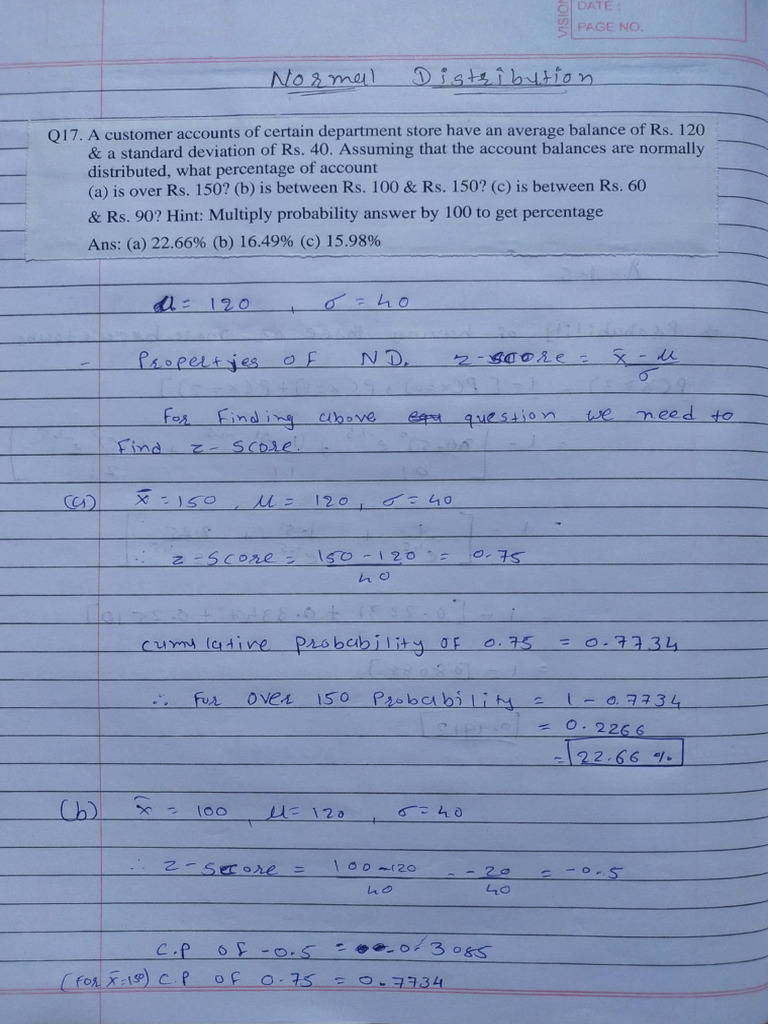 VISION
DATE :
PAGE NO.
Normal Distribution
Q17. A customer accounts of certain department store have an average balance of Rs. 120
& a standard deviation of Rs. 40. Assuming that the account balances are normally
distributed, what percentage of account
(a) is over Rs. 150? (b) is between Rs. 100 & Rs. 150? (c) is between Rs. 60
& Rs. 90? Hint: Multiply probability answer by 100 to get percentage
Ans: (a) 22.66% (b) 16.49% (c) 15.98%
μ = 120 , σ = 40
- Properties of ND. z-score = x̄ - μ / σ
For Finding above question we need to
Find z - score.
(a) x̄ = 150 , μ = 120 , σ = 40
∴ z - score = 150 - 120 / 40 = 0.75
cumulative probability of 0.75 = 0.7734
∴ For over 150 Probability = 1 - 0.7734
= 0.2266
= 22.66 %
(b) x̄ = 100 , μ = 120 , σ = 40
∴ z - score = 100 - 120 / 40 = - 20 / 40 = - 0.5
C.P of - 0.5 = 0.3085
(For x̄ = 150) C.P of 0.75 = 0.7734